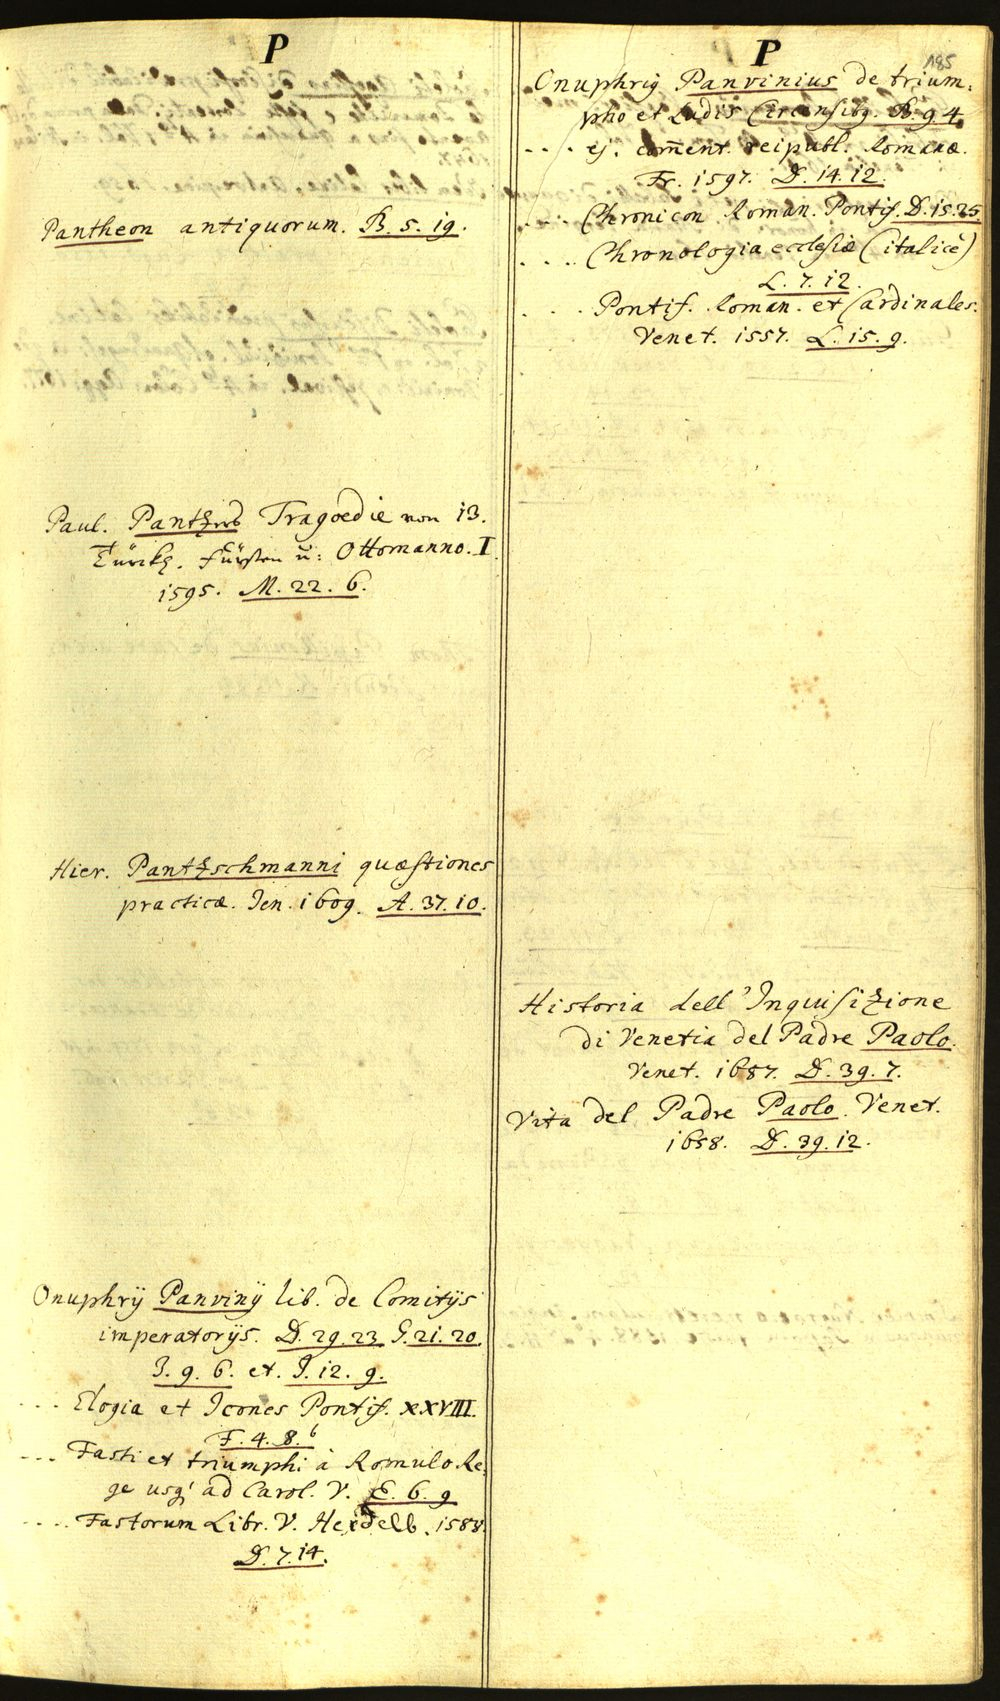 P
Pantheon antiquorum. B. 5. 19.
Paul. Pantzers Tragoedie von 13.
Türckh. Fürsten u: Ottomanno. I
1595. M. 22. 6.
Hier. Pantzschmanni quæstiones
practicæ. Jen. 1609. A. 37. 10.
Onuphrij Panvinij lib. de Comitijs
imperatorijs. D. 29. 23. G. 21. 20.
J. 9. 6. et. J. 12. 9.
... Elogia et Icones Pontif. XXVIII.
F. 4. 8. b
... Fasti et triumphi à Romulo Re,
ge usq; ad Carol. V. E. 6. 9
.... Fastorum Libr. V. Heidelb. 1588.
D. 7. 14.
P
185
Onuphrig Panvinius de trium,
pho et Ludis Circensibg. B. 9 4.
.... ej. com̄ent. reipubl. Romanæ.
Fr. 1597. D. 14. 12.
.... Chronicon Roman. Pontif. D. 15. 25.
.... Chronologia ecclesiæ (italicè)
L. 7. 12.
.... Pontif. Roman. et Cardinales.
Venet. 1557. L. 15. 9.
Historia dell'Inquisizione
di Venetia del Padre Paolo.
Venet. 1687. D. 39. 7.
Vita del Padre Paolo. Venet.
1658. D. 39. 12.